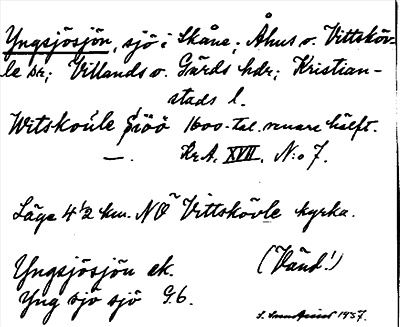 Yngsjösjön, sjö i Skåne; Åhus o. Vittsköv-
le snr; Villands o. Gärds hdr; Kristian-
stads l.
Witskoúle Siöö 1600-tal. senare hälft.
—. Kr.A. XVII. N:o 7.
Läge 4½ km. NÖ Vittskövle kyrka.
Yngsjösjön ek. (Vänd!)
Yngsjösjö G.b.
1937.